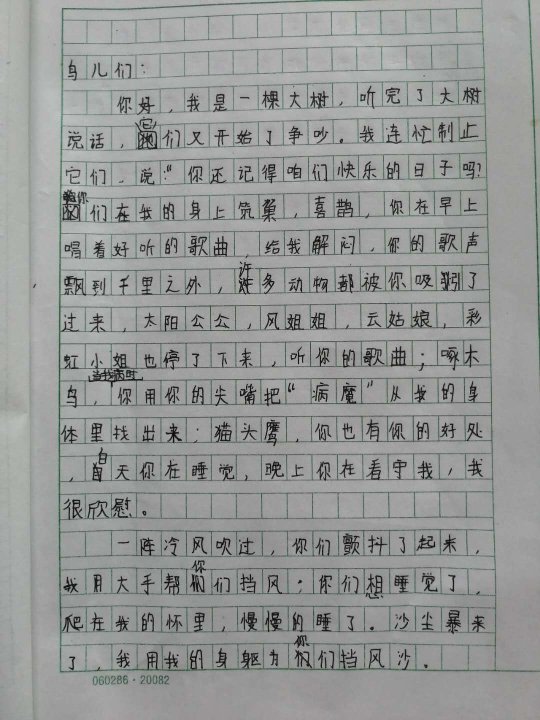 鸟儿们：
你好，我是一棵大树，听完了大树
说话，它们又开始了争吵。我连忙制止
它们，说：“你还记得咱们快乐的日子吗？
你们在我的身上筑巢，喜鹊，你在早上
唱着好听的歌曲，给我解闷，你的歌声
飘到千里之外，许多动物都被你吸引了
过来，太阳公公，风姐姐，云姑娘，彩
虹小姐也停了下来，听你的歌曲；啄木
鸟，当我病时，你用你的尖嘴把“病魔”从我的身
体里找出来；猫头鹰，你也有你的好处
，白天你在睡觉，晚上你在看守我，我
很欣慰。
一阵冷风吹过，你们颤抖了起来，
我用大手帮你们挡风；你们想睡觉了，
爬在我的怀里，慢慢的睡了。沙尘暴来
了，我用我的身躯为你们挡风沙。
060286·20082